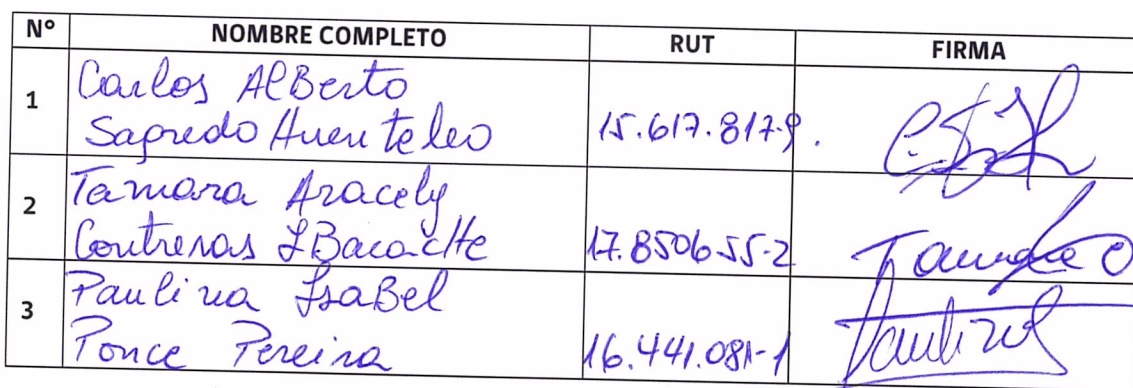 Nº NOMBRE COMPLETO RUT FIRMA
1 Carlos Alberto
Sagredo Huenteleo 15.617.817-9.
2 Tamara Aracely
Contreras 17.850655-2 Tamara C
3 Paulina Isabel
Ponce Pereira 16.441.081-1 Paulina